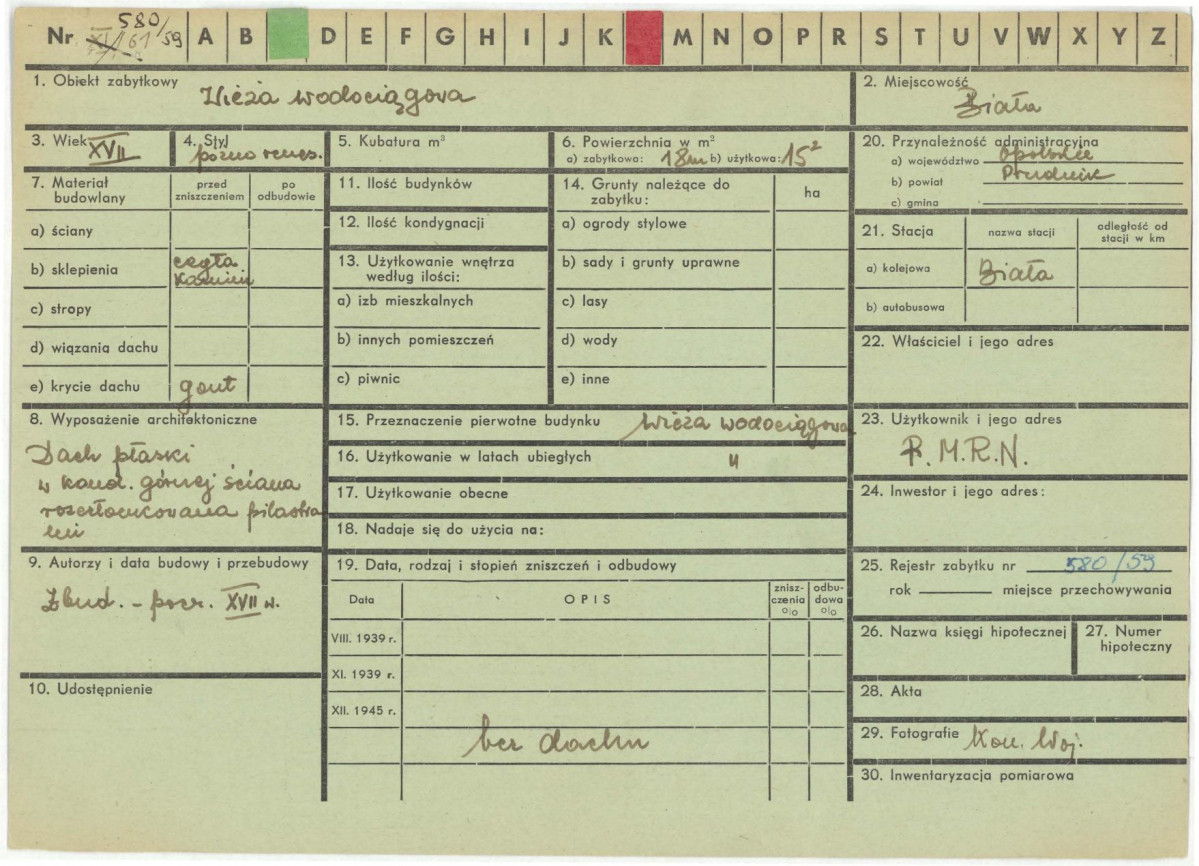 Nr 580/59 A B D E F G H I J K M N O P R S T U V W X Y Z
1. Obiekt zabytkowy Wieża wodociągowa
2. Miejscowość Biała
3. Wiek XVII
4. Styl pozno renes.
5. Kubatura m³
6. Powierzchnia w m²
a) zabytkowa: 18m b) użytkowa: 15²
20. Przynależność administracyjna
a) województwo Opolskie
b) powiat Prudnik
c) gmina
7. Materiał budowlany
przed zniszczeniem
po odbudowie
a) ściany
b) sklepienia cegła kamień
c) stropy
d) wiązania dachu
e) krycie dachu gont
11. Ilość budynków
12. Ilość kondygnacji
13. Użytkowanie wnętrza
według ilości:
a) izb mieszkalnych
b) innych pomieszczeń
c) piwnic
14. Grunty należące do
zabytku:
ha
a) ogrody stylowe
b) sady i grunty uprawne
c) lasy
d) wody
e) inne
21. Stacja
nazwa stacji
odległość od
stacji w km
a) kolejowa Biała
b) autobusowa
22. Właściciel i jego adres
8. Wyposażenie architektoniczne
Dach płaski
w kond. górnej ściana
rozczłonkowana pilastra
mi
15. Przeznaczenie pierwotne budynku Wieża wodociągowa
16. Użytkowanie w latach ubiegłych "
17. Użytkowanie obecne
18. Nadaje się do użycia na:
23. Użytkownik i jego adres
P.M.R.N.
24. Inwestor i jego adres:
9. Autorzy i data budowy i przebudowy
Zbud. - pocz. XVII w.
10. Udostępnienie
19. Data, rodzaj i stopień zniszczeń i odbudowy
Data
OPIS
znisz-
czenia
%
odbu-
dowa
%
VIII. 1939 r.
XI. 1939 r.
XII. 1945 r.
bez dachu
25. Rejestr zabytku nr 580/59
rok miejsce przechowywania
26. Nazwa księgi hipotecznej
27. Numer
hipoteczny
28. Akta
29. Fotografie Kon. Woj.
30. Inwentaryzacja pomiarowa